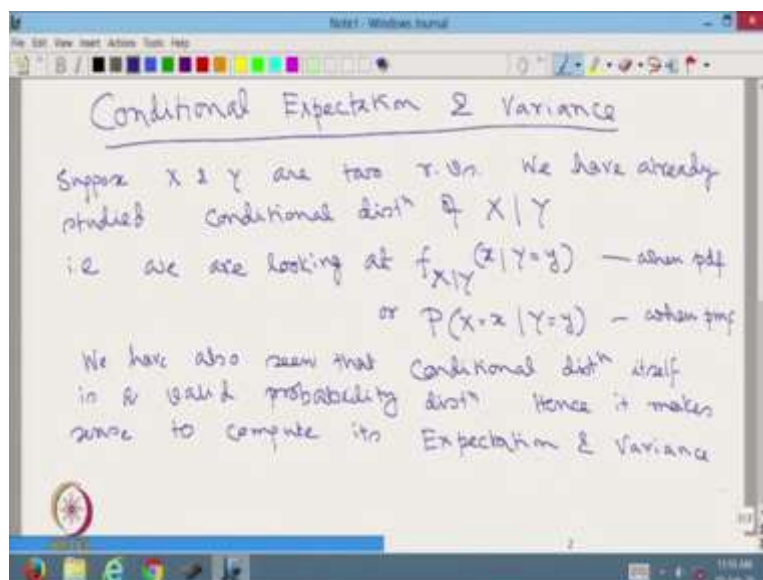 Note1 - Windows Journal
File Edit View Insert Actions Tools Help
Conditional Expectation & Variance
Suppose X & Y are two r.vs. We have already
studied conditional distⁿ of X|Y
i.e we are looking at f_{X|Y}(x|Y=y) — when pdf
or P(X=x|Y=y) — when pmf
We have also seen that Conditional distⁿ itself
is a valid probability distⁿ Hence it makes
sense to compute its Expectation & Variance
2